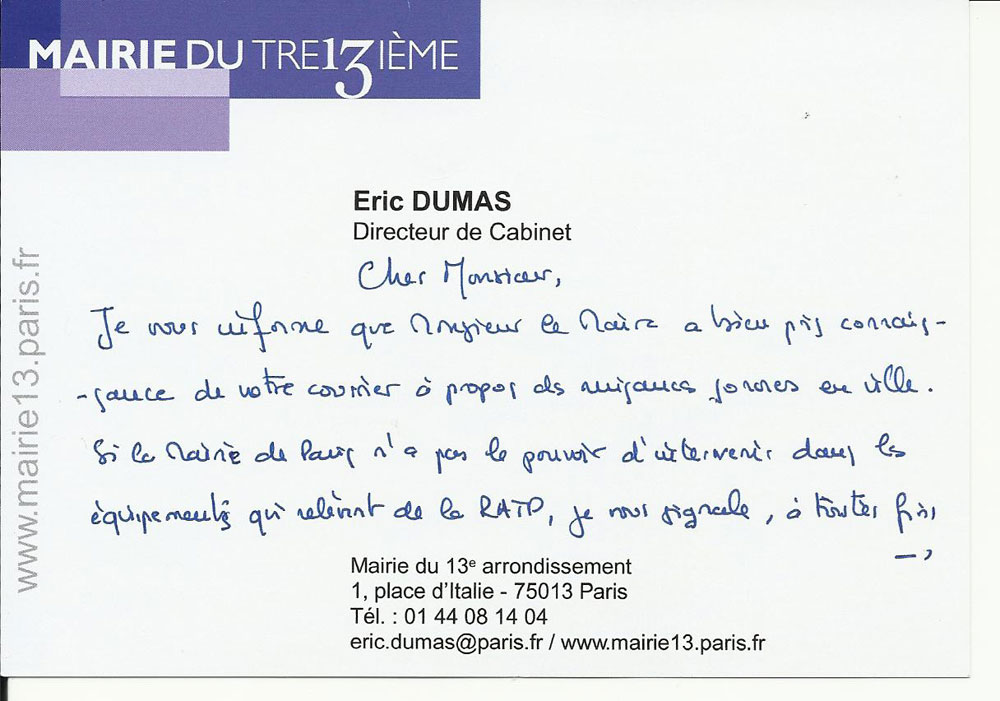 MAIRIE DU TRE13IÈME
www.mairie13.paris.fr
Eric DUMAS
Directeur de Cabinet
Cher Monsieur,
Je vous informe que Monsieur le Maire a bien pris connais-
-sance de votre courrier à propos des nuisances sonores en ville.
Si la Mairie de Paris n'a pas le pouvoir d'intervenir dans les
équipements qui relèvent de la RATP, je vous signale, à toutes fins
→
Mairie du 13e arrondissement
1, place d'Italie - 75013 Paris
Tél. : 01 44 08 14 04
eric.dumas@paris.fr / www.mairie13.paris.fr